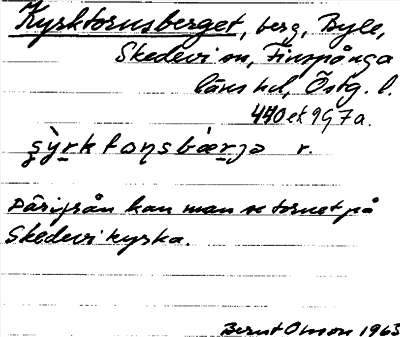 Kyrktornsberget, berg, Byle,
Skedevi sn, Finspånga
läns hd, Östg. l.
440 ek 9G7a.
s̬ỳrktoṇsbæ̀rjə r.
Därifrån kan man se tornet på
Skedevi kyrka.
Bernt Olsson 1963